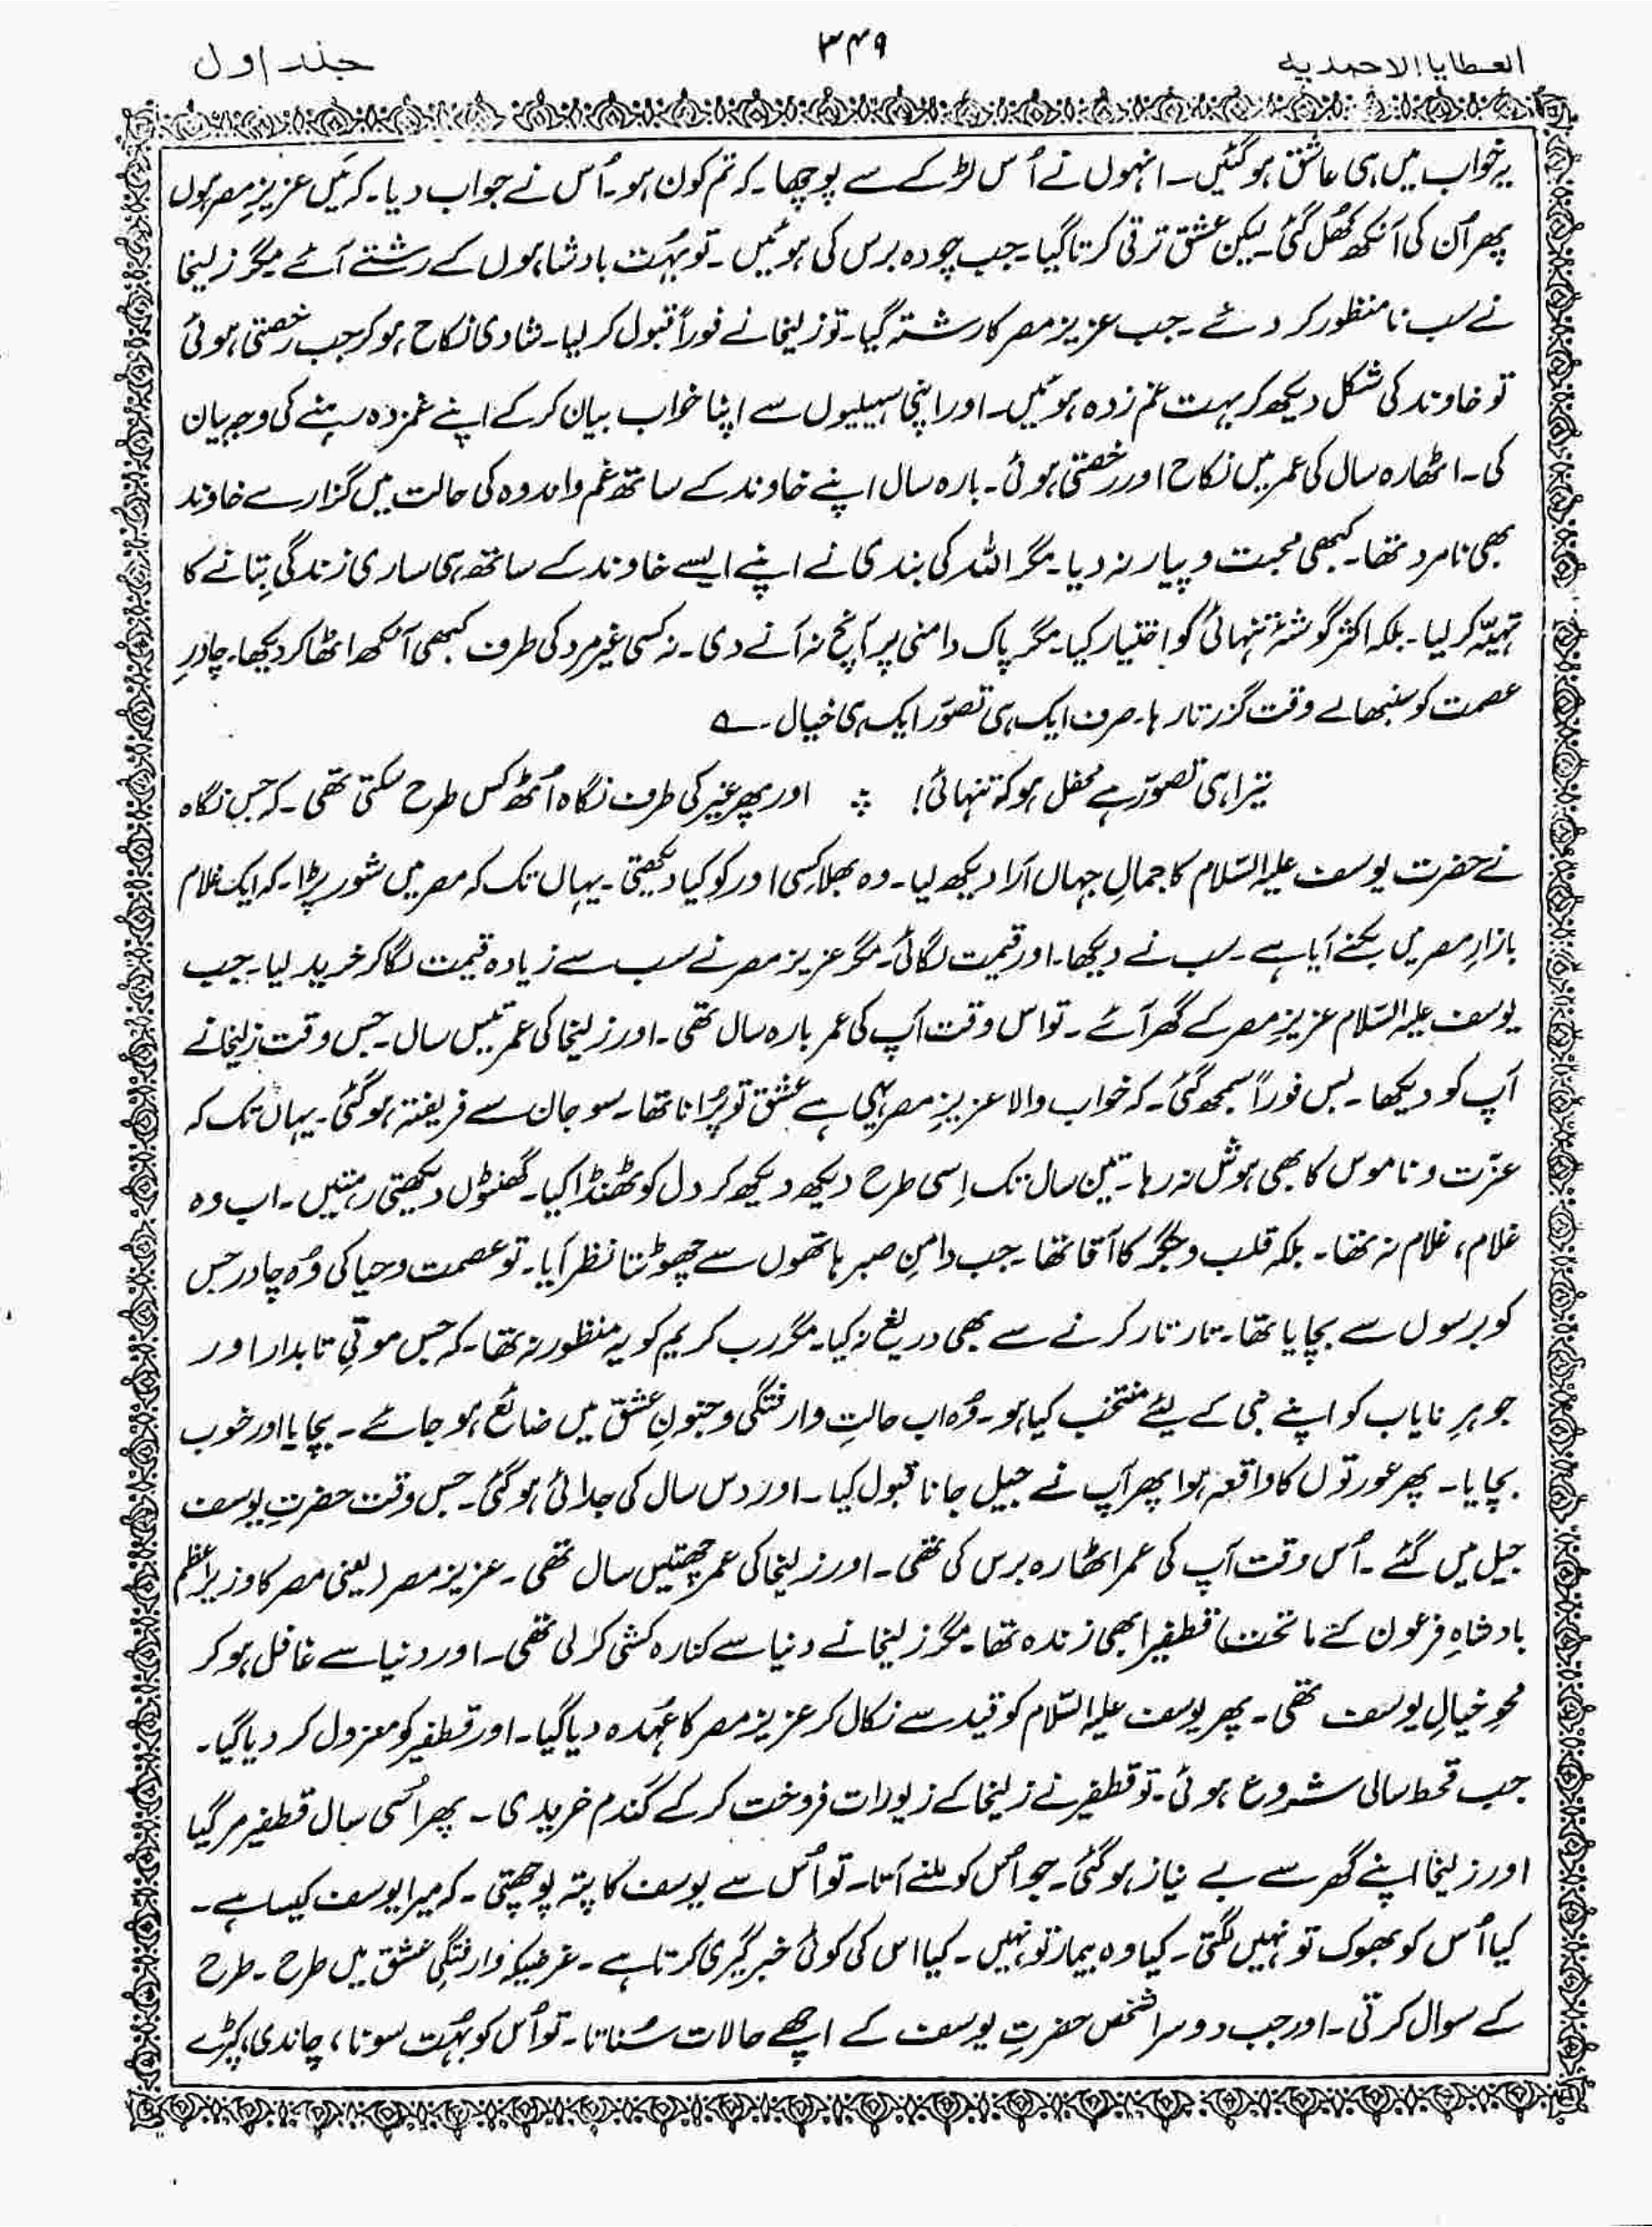 العطایا الاحمدیه ۳۴۹ جلد اول
پر خواب میں ہی عاشق ہو گئیں۔ انہوں نے اُس لڑکے سے پوچھا۔ کہ تم کون ہو۔ اُس نے جواب دیا۔ کہ مَیں عزیزِ مصر ہوں
پھر اُن کی آنکھ کھُل گئی۔ لیکن عشق ترقی کرتا گیا۔ جب چودہ برس کی ہوئیں۔ تو بہُت بادشاہوں کے رشتے آئے میگر زلیخا
نے سب نا منظور کر دئے۔ جب عزیز مصر کا رشتہ گیا۔ تو زلیخا نے فوراً قبول کر لیا۔ شادی نکاح ہو کر جب رخصتی ہوئی
تو خاوند کی شکل دیکھ کر بہت غم زدہ ہوئیں۔ اور اپنی سہیلیوں سے اپنا خواب بیان کر کے اپنے غمزدہ رہنے کی وجہ بیان
کی۔ اٹھارہ سال کی عمر میں نکاح اور رخصتی ہوئی۔ بارہ سال اپنے خاوند کے ساتھ غم و اندوہ کی حالت میں گزارے خاوند
بھی نامرد تھا۔ کبھی محبت و پیار نہ دیا۔ مگر اللہ کی بندی نے اپنے ایسے خاوند کے ساتھ ہی ساری زندگی بِتانے کا
تہیّہ کر لیا۔ بلکہ اکثر گوشۂ تنہائی کو اختیار کیا۔ مگر پاک دامنی پر آنچ نہ آنے دی۔ نہ کسی غیر مرد کی طرف کبھی آنکھ اٹھا کر دیکھا۔ چادرِ
عصمت کو سنبھالے وقت گزرتا رہا۔ صرف ایک ہی تصوّر ایک ہی خیال۔ ؎
تیرا ہی تصوّر ہے محفل ہو کہ تنہائی! ؞ اور پھر غیر کی طرف نگاہ اُٹھ کس طرح سکتی تھی۔ کہ جس نگاہ
نے حضرت یوسف علیہ السّلام کا جمالِ جہاں آرا دیکھ لیا۔ وہ بھلا کسی اور کو کیا دیکھتی۔ یہاں تک کہ مصر میں شور پڑا۔ کہ ایک غلام
بازارِ مصر میں بکنے آیا ہے۔ سب نے دیکھا۔ اور قیمت لگائی۔ مگر عزیز مصر نے سب سے زیادہ قیمت لگا کر خرید لیا۔ جب
یوسف علیہ السّلام عزیزِ مصر کے گھر آئے۔ تو اس وقت آپ کی عمر بارہ سال تھی۔ اور زلیخا کی عمر تیس سال۔ جس وقت زلیخا نے
آپ کو دیکھا۔ بس فوراً سمجھ گئی۔ کہ خواب والا عزیزِ مصر یہی ہے عشق تو پُرانا تھا۔ سو جان سے فریفتہ ہو گئی۔ یہاں تک کہ
عزّت و ناموس کا بھی ہوش نہ رہا۔ تین سال تک اِسی طرح دیکھ دیکھ کر دل کو ٹھنڈا کیا۔ گھنٹوں دیکھتی رہتیں۔ اب وہ
غلام، غلام نہ تھا۔ بلکہ قلب و جگر کا آقا تھا۔ جب دامنِ صبر ہاتھوں سے چھوٹتا نظر آیا۔ تو عصمت و حیا کی وُہ چادر جس
کو برسوں سے بچایا تھا۔ تار تار کرنے سے بھی دریغ نہ کیا۔ مگر رب کریم کو یہ منظور نہ تھا۔ کہ جس موتیِ تابدار اور
جوہرِ نایاب کو اپنے نبی کے لیئے منتخب کیا ہو۔ وُہ اب حالتِ وارفتگی و جنونِ عشق میں ضائع ہو جائے۔ بچایا اور خوب
بچایا۔ پھر عورتوں کا واقعہ ہوا پھر آپ نے جیل جانا قبول کیا۔ اور دس سال کی جدائی ہو گئی۔ جس وقت حضرتِ یوسف
جیل میں گئے۔ اُس وقت آپ کی عمر اٹھارہ برس کی تھی۔ اور زلیخا کی عمر چھتیس سال تھی۔ عزیز مصر (یعنی مصر کا وزیر اعظم
بادشاہِ فرعون کے ماتحت) قطفیر ابھی زندہ تھا۔ مگر زلیخا نے دنیا سے کنارہ کشی کر لی تھی۔ اور دنیا سے غافل ہو کر
محوِ خیالِ یوسف تھی۔ پھر یوسف علیہ السّلام کو قید سے نکال کر عزیز مصر کا عہُدہ دیا گیا۔ اور قطفیر کو معزول کر دیا گیا۔
جب قحط سالی شروع ہوئی۔ تو قطفیر نے زلیخا کے زیورات فروخت کر کے گندم خریدی۔ پھر اُسی سال قطفیر مر گیا
اور زلیخا اپنے گھر سے بے نیاز ہو گئی۔ جو اُس کو ملنے آتا۔ تو اُس سے یوسف کا پتہ پوچھتی۔ کہ میرا یوسف کیسا ہے۔
کیا اُس کو بھوک تو نہیں لگتی۔ کیا وہ بیمار تو نہیں۔ کیا اس کی کوئی خبر گیری کرتا ہے۔ غرضیکہ وارفتگیِ عشق میں طرح۔ طرح
کے سوال کرتی۔ اور جب دوسرا شخص حضرتِ یوسف کے اچھے حالات سُناتا۔ تو اُس کو بہُت سونا، چاندی، کپڑے